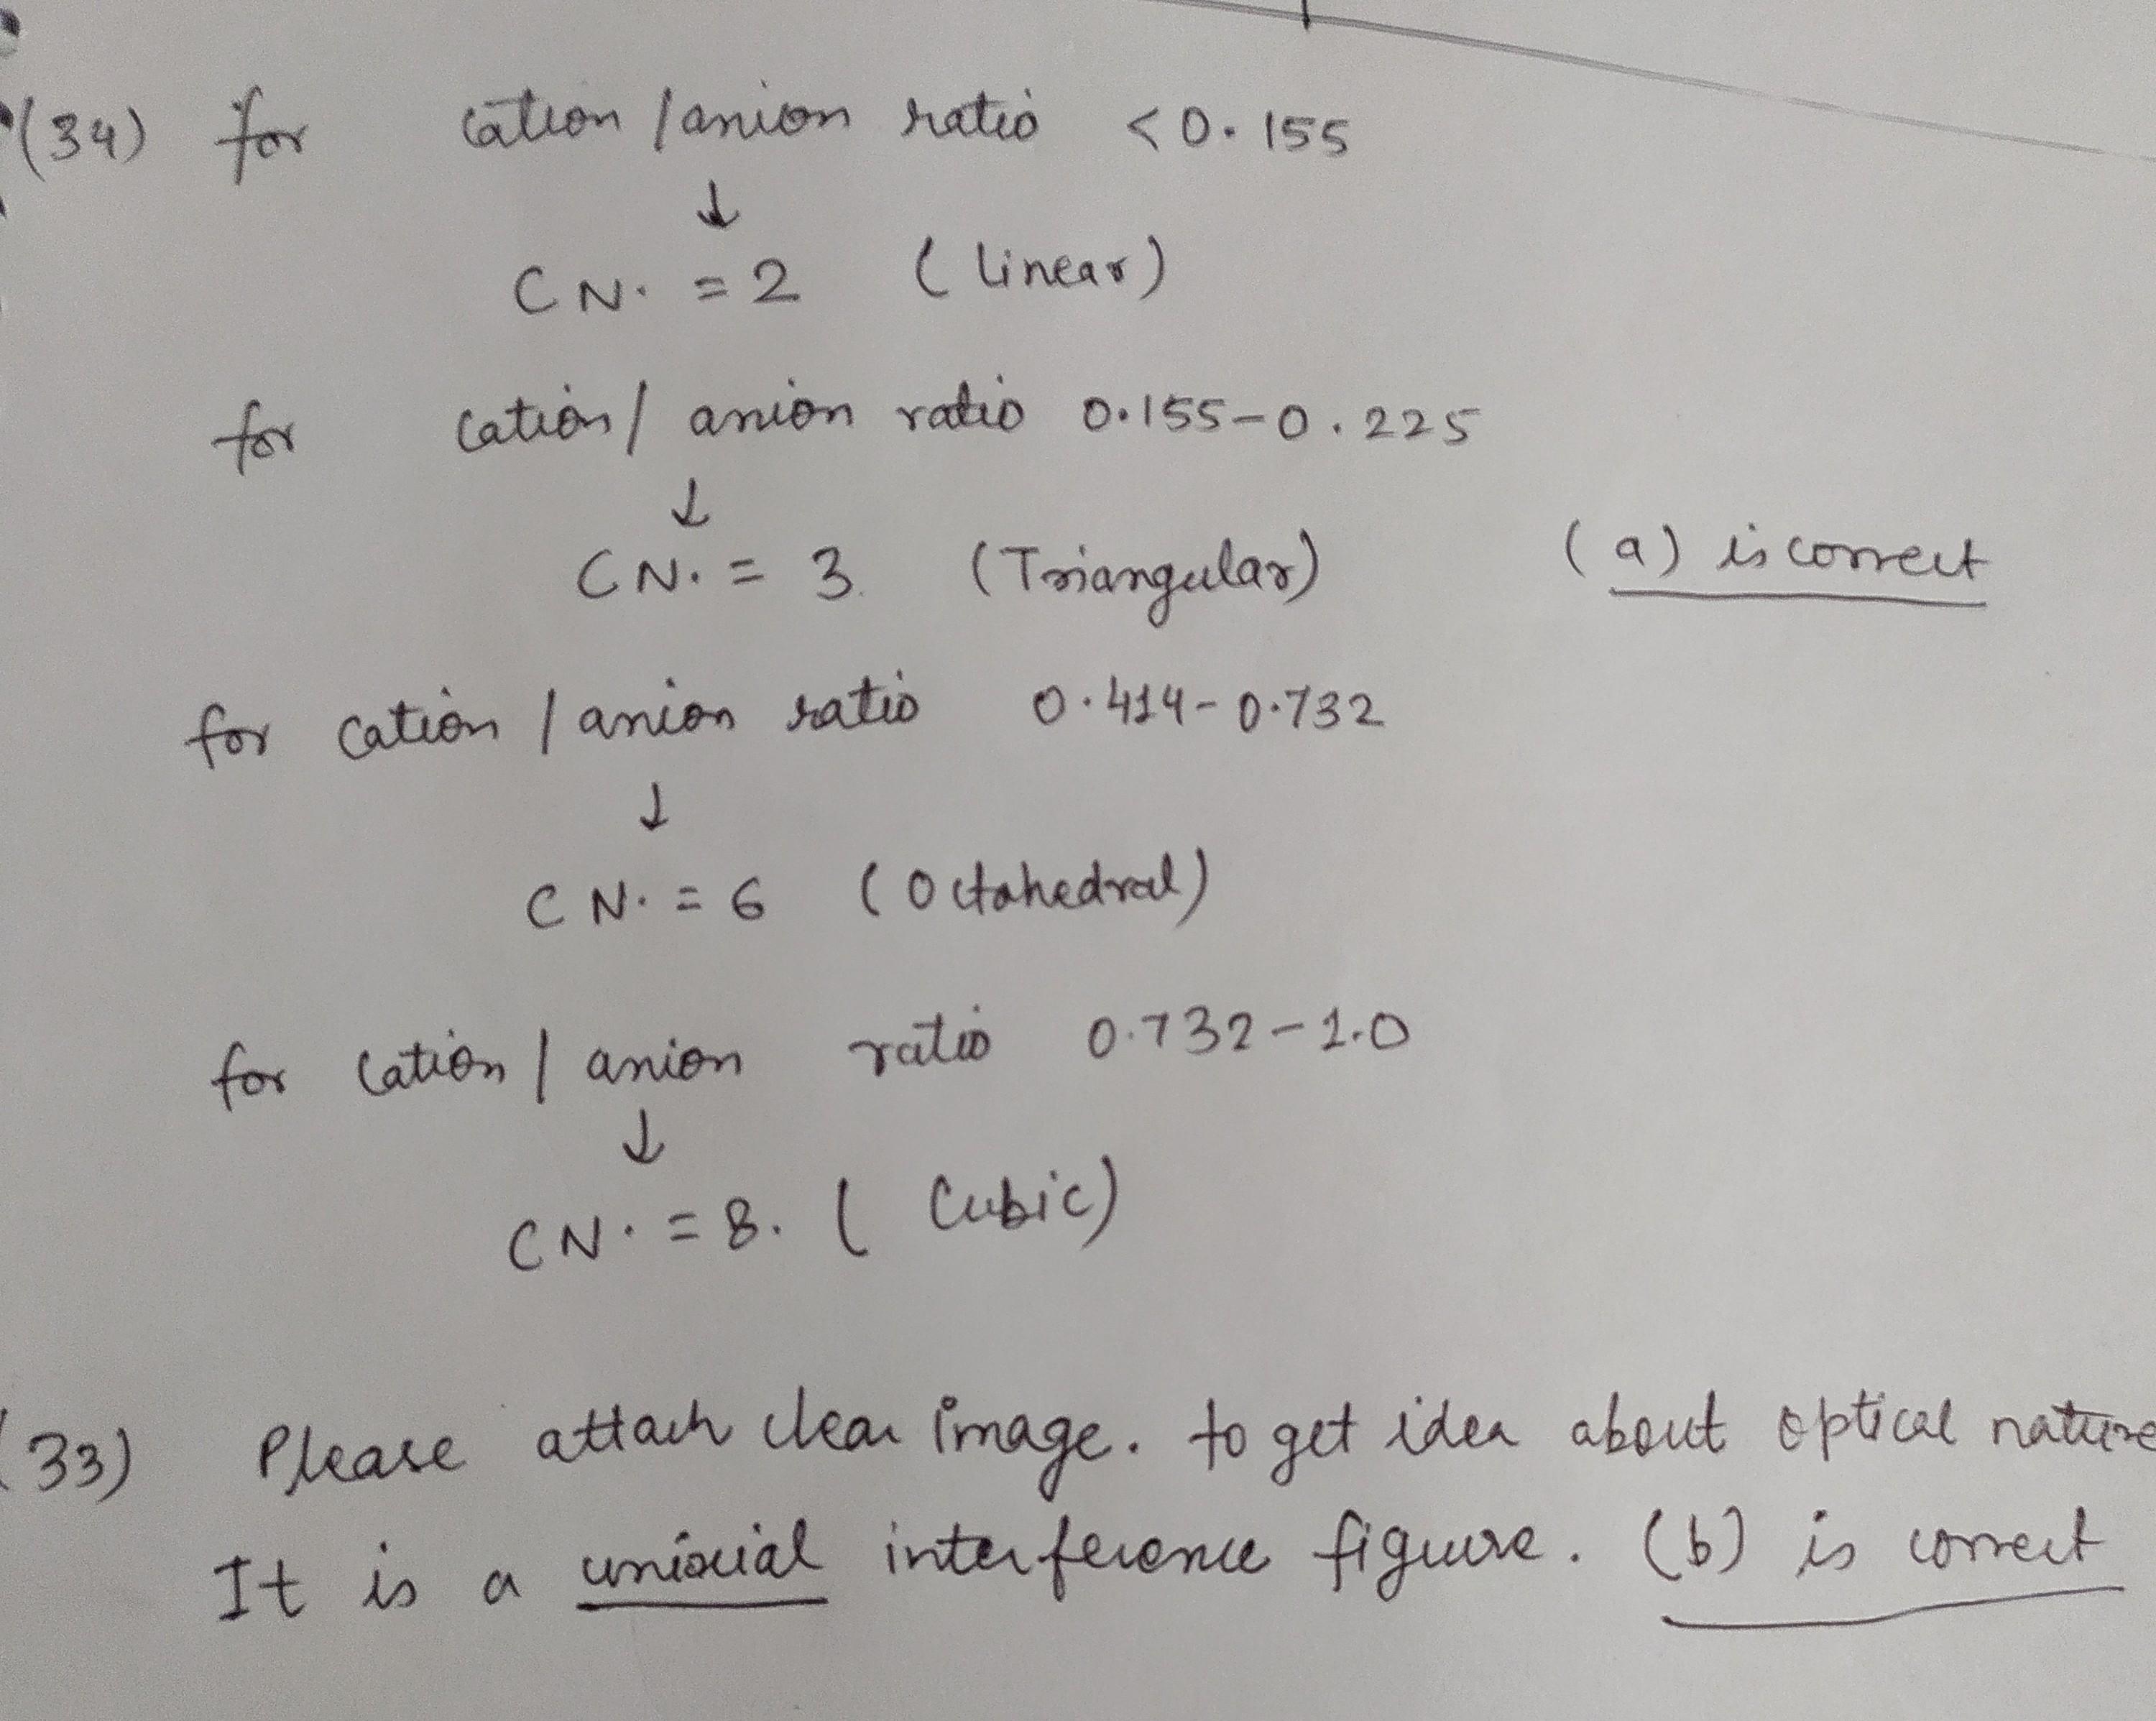 (34) for cation / anion ratio < 0.155
↓
CN. = 2 (Linear)
for cation / anion ratio 0.155-0.225
↓
CN. = 3. (Triangular) (a) is correct
for cation / anion ratio 0.414-0.732
↓
CN. = 6 (Octahedral)
for cation / anion ratio 0.732-1.0
↓
CN. = 8. ( Cubic)
(33) Please attach clear image. to get idea about optical nature
It is a uniaxial interference figure. (b) is correct